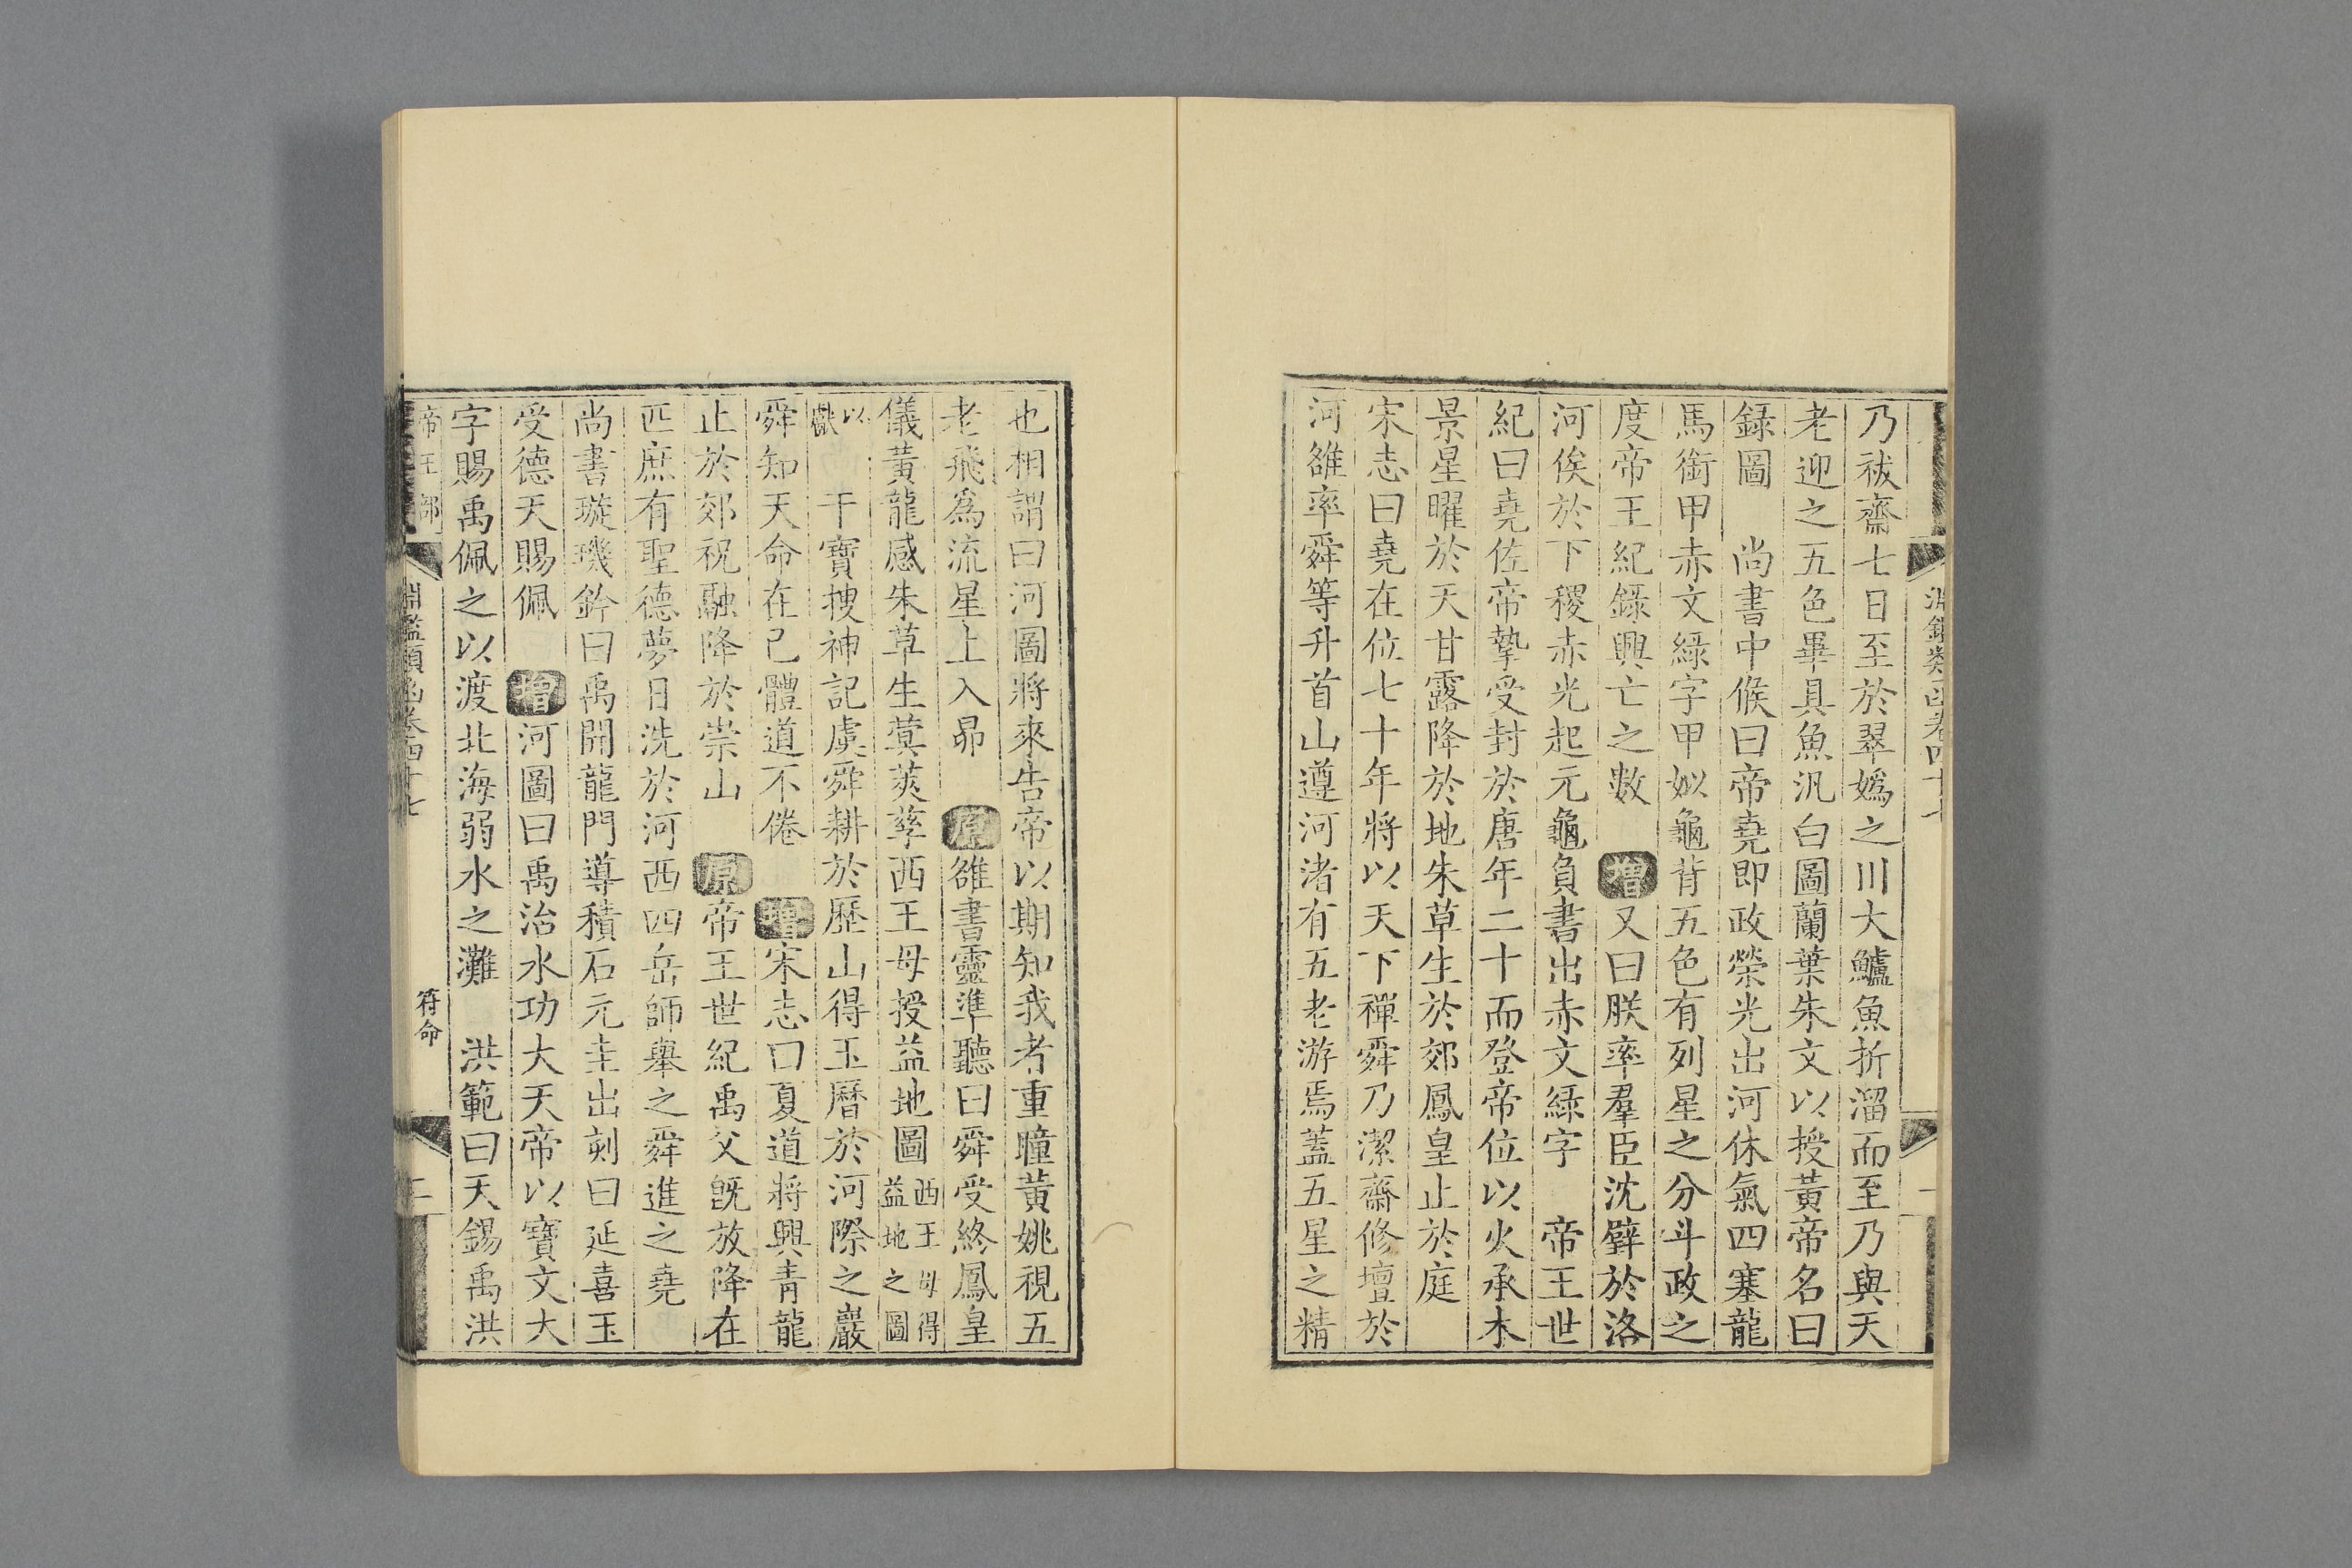 乃祓齋七日至於翠嬀之川大鱸魚折溜而至乃與天
老迎之五色畢具魚汎白圖蘭葉朱文以授黃帝名曰
錄圖　尚書中候曰帝堯即政榮光出河休氣四塞龍
馬銜甲赤文綠字甲姒龜背五色有列星之分斗政之
度帝王紀錄興亡之數　增又曰朕率羣臣沈璧於洛
河俟於下稷赤光起元龜負書出赤文綠字　帝王世
紀曰堯佐帝摯受封於唐年二十而登帝位以火承木
景星曜於天甘露降於地朱草生於郊鳳皇止於庭
宋志曰堯在位七十年將以天下禪舜乃潔齋修壇於
河雒率舜等升首山遵河渚有五老游焉蓋五星之精
也相謂曰河圖將來告帝以期知我者重瞳黃姚視五
老飛爲流星上入昴　原雒書靈準聽曰舜受終鳳皇
儀黃龍感朱草生蓂莢孳西王母授益地圖西王母得益地之圖
以獻　干寶搜神記虞舜耕於歷山得玉曆於河際之巖
舜知天命在己體道不倦　增宋志曰夏道將興青龍
止於郊祝融降於崇山　原帝王世紀禹父旣放降在
匹庶有聖德夢日洗於河西四岳師舉之舜進之堯
尚書璇璣鈐曰禹開龍門導積石元圭出刻曰延喜玉
受德天賜佩　增河圖曰禹治水功大天帝以寶文大
字賜禹佩之以渡北海弱水之灘　洪範曰天錫禹洪
帝王部　淵鑑類函卷四十七　符命　二